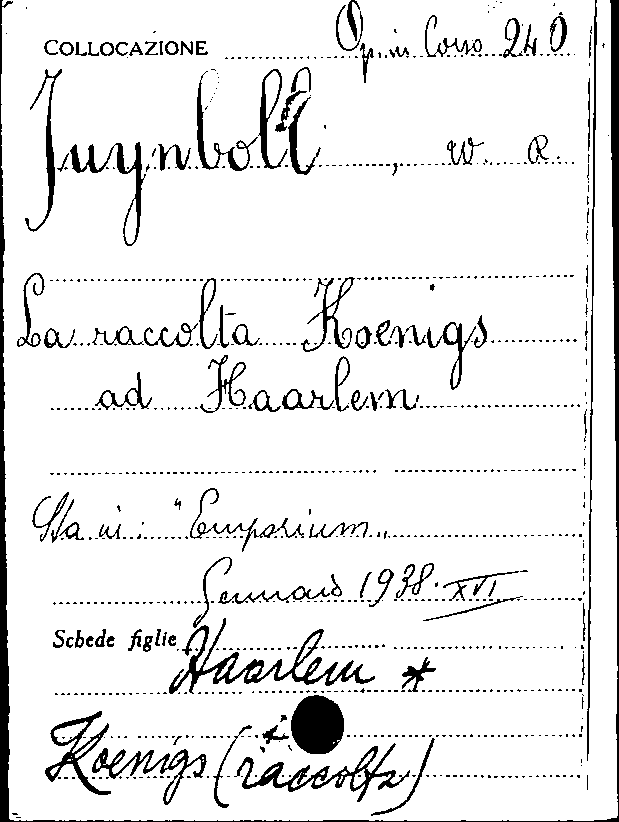 COLLOCAZIONE Op. in Corso 240
Juynboll, W. R.
La raccolta Koenigs
ad Haarlem
Sta in: "Emporium„
Gennaio 1938. XVI
Schede figlie Haarlem *
Koenigs (raccolta)